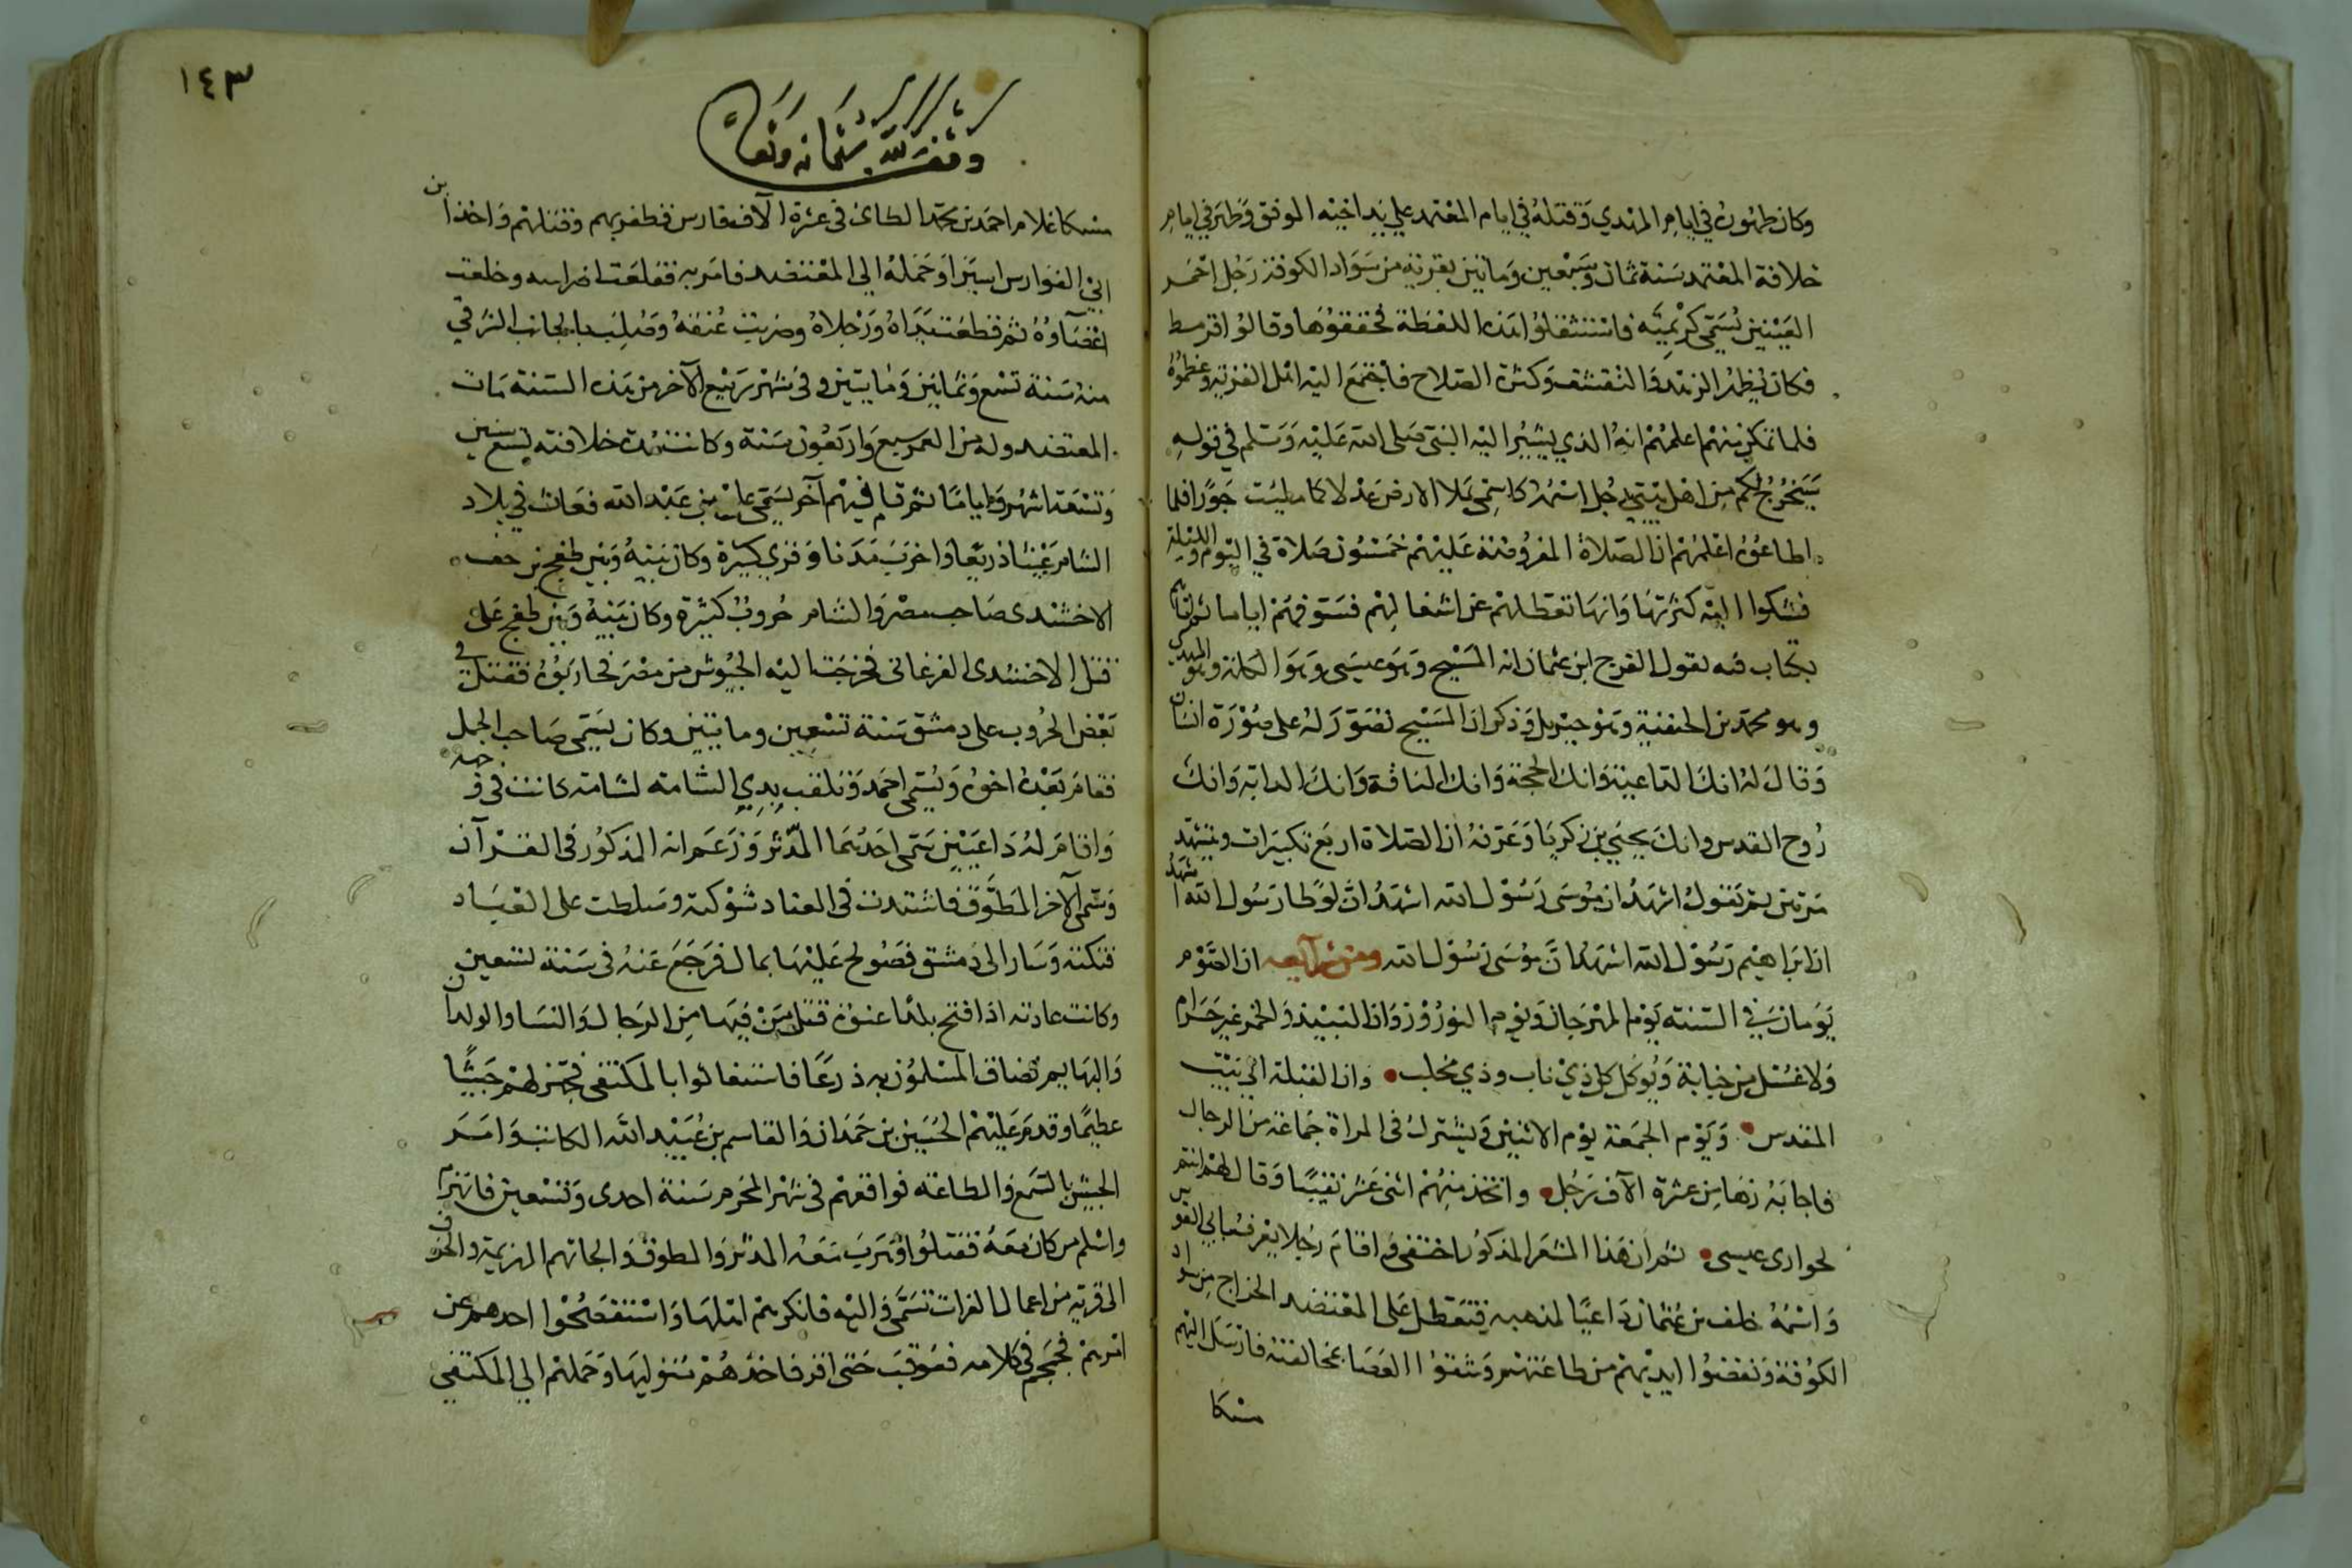 وكان ظهوره في ايام المهتدي وقتله في ايام المعتمد علي يد اخيه الموفق وظهر في ايام
خلافة المعتمد سنة ثمان وسبعين ومايتين بقرية من سواد الكوفة رجل احمر
العينين يسمي كرميته فاستثقلوا هذه اللفظة فخففوها وقالوا قرمط
فكان يظهر الزهد والتقشف وكثرة الصلاح فاجتمع اليه اهل القرية وعظموه
فلما تمكن منهم اعلمهم انه الذي يشير اليه النبي صلى الله عليه وسلم في قوله
سيخرج لكم من اهل بيتي رجل اسمه كاسمي يملا الارض عدلا كما مليت جورا فلما
اطاعوه اعلمهم ان الصلاة المفروضة عليهم خمسون صلاة في اليوم والليلة
فشكوا اليه كثرتها وانها تعطلهم عن اشغالهم فسوفهم اياما ثم اتاهم
بكتاب فيه يقول الفرج ابن عثمان انه المسيح وهو عيسى وهو الكلمة وهو المهدي
وهو محمد بن الحنفية وهو جبريل وذكر ان المسيح تصور له على صورة انسان
وقال له انك الداعية وانك الحجة وانك الناقة وانك الدابة وانك
روح القدس وانك يحيى بن زكريا وعرفه ان الصلاة اربع تكبيرات ويتشهد
مرتين ثم يقول اشهد ان موسى رسول الله اشهد ان لوطا رسول الله اشهد
ان ابراهيم رسول الله اشهد ان موسى رسول الله ومن شرايعه ان الصوم
يومان في السنة يوم المهرجان ويوم النوروز وان النبيذ والخمر غير حرام
ولا غسل من جنابة ويوكل كل ذي ناب وذي مخلب وان القبلة الي بيت
المقدس ويوم الجمعة يوم الاثنين ويشترك في المراة جماعة من الرجال
فاجابه زها من عشرة الاف رجل واتخذ منهم اثنى عشر نقيبا وقال لهم انتم
لحواري عيسى ثم ان هذا المذكور اختفى واقام رجلا يعرف بابي الفوارس
واسمه خلف بن عثمان داعيا لمذهبه فتعطل على المعتضد الخراج من سواد
الكوفة ونفضوا ايديهم من طاعتهم وشقوا العصا بمخالفته فارسل اليهم
مسكا
١٤٣
وقف لله سبحانه وتعالى
مسكا غلام احمد بن محمد الطائ في عشرة الاف فارس فظفر بهم وقتلهم واخذ ابن
ابي الفوارس اسيرا وحمله الي المعتضد فامر به فقلعت اضراسه وخلعت
اعضاوه ثم قطعت يداه ورجلاه وضربت عنقه وصلب بالجانب الشرقي
منه سنة تسع وثمانين ومايتين وفي شهر ربيع الآخر من هذه السنة مات
المعتضد وله من العمر سبع واربعون سنة وكانت مدة خلافته تسع سنين
وتسعة اشهر واياما ثم قام فيهم آخر يسمى علي بن عبد الله فعاث في بلاد
الشام عيثا ذريعا واخرب مدنا وقرى كبيرة وكان بينه وبين طغج بن جف
الاخشيدي صاحب مصر والشام حروب كثيرة وكان بينه وبين طغج على
قتل الاخشيدي الفرغاني فخرجت اليه الجيوش من مصر فحاربوه فقتل في
بعض الحروب على دمشق سنة تسعين ومايتين وكان يسمى صاحب الجمل
فقام بعده اخوه ويسمى احمد وتلقب بذي الشامة لشامة كانت في وجهه
واقام له داعيين يسمى احدهما المدثر وزعم انه المذكور في القرآن
وسمى الآخر المطوق فاشتدت في العناد شوكته وسلطت على العباد
فتكته وسار الى دمشق فصولح عليها بمال فرجع عنه في سنة تسعين
وكانت عادته اذا فتح بلدا عنوة قتل من فيها من الرجال والنسا والولدان
والبهايم فضاق المسلمون به ذرعا فاستغاثوا بالمكتفى فجهز لهم جيشا
عظيما وقدم عليهم الحسين بن حمدان والقاسم بن عبيد الله الكاتب وامر
الجيش بالسمع والطاعة فواقعهم في شهر المحرم سنة احدى وتسعين فانهزم
واسلم من كان معه فقتلوا وهرب معه المدثر والمطوق والجاتهم الهزيمة والخوف
الى قرية من اعمال الفرات تسمى الدالية فانكرهم اهلها واستفضحوا احدهم عن
امرهم فجمجم في كلامه فعوقب حتى اقر فاخذهم متوليها وحملهم الي المكتفي